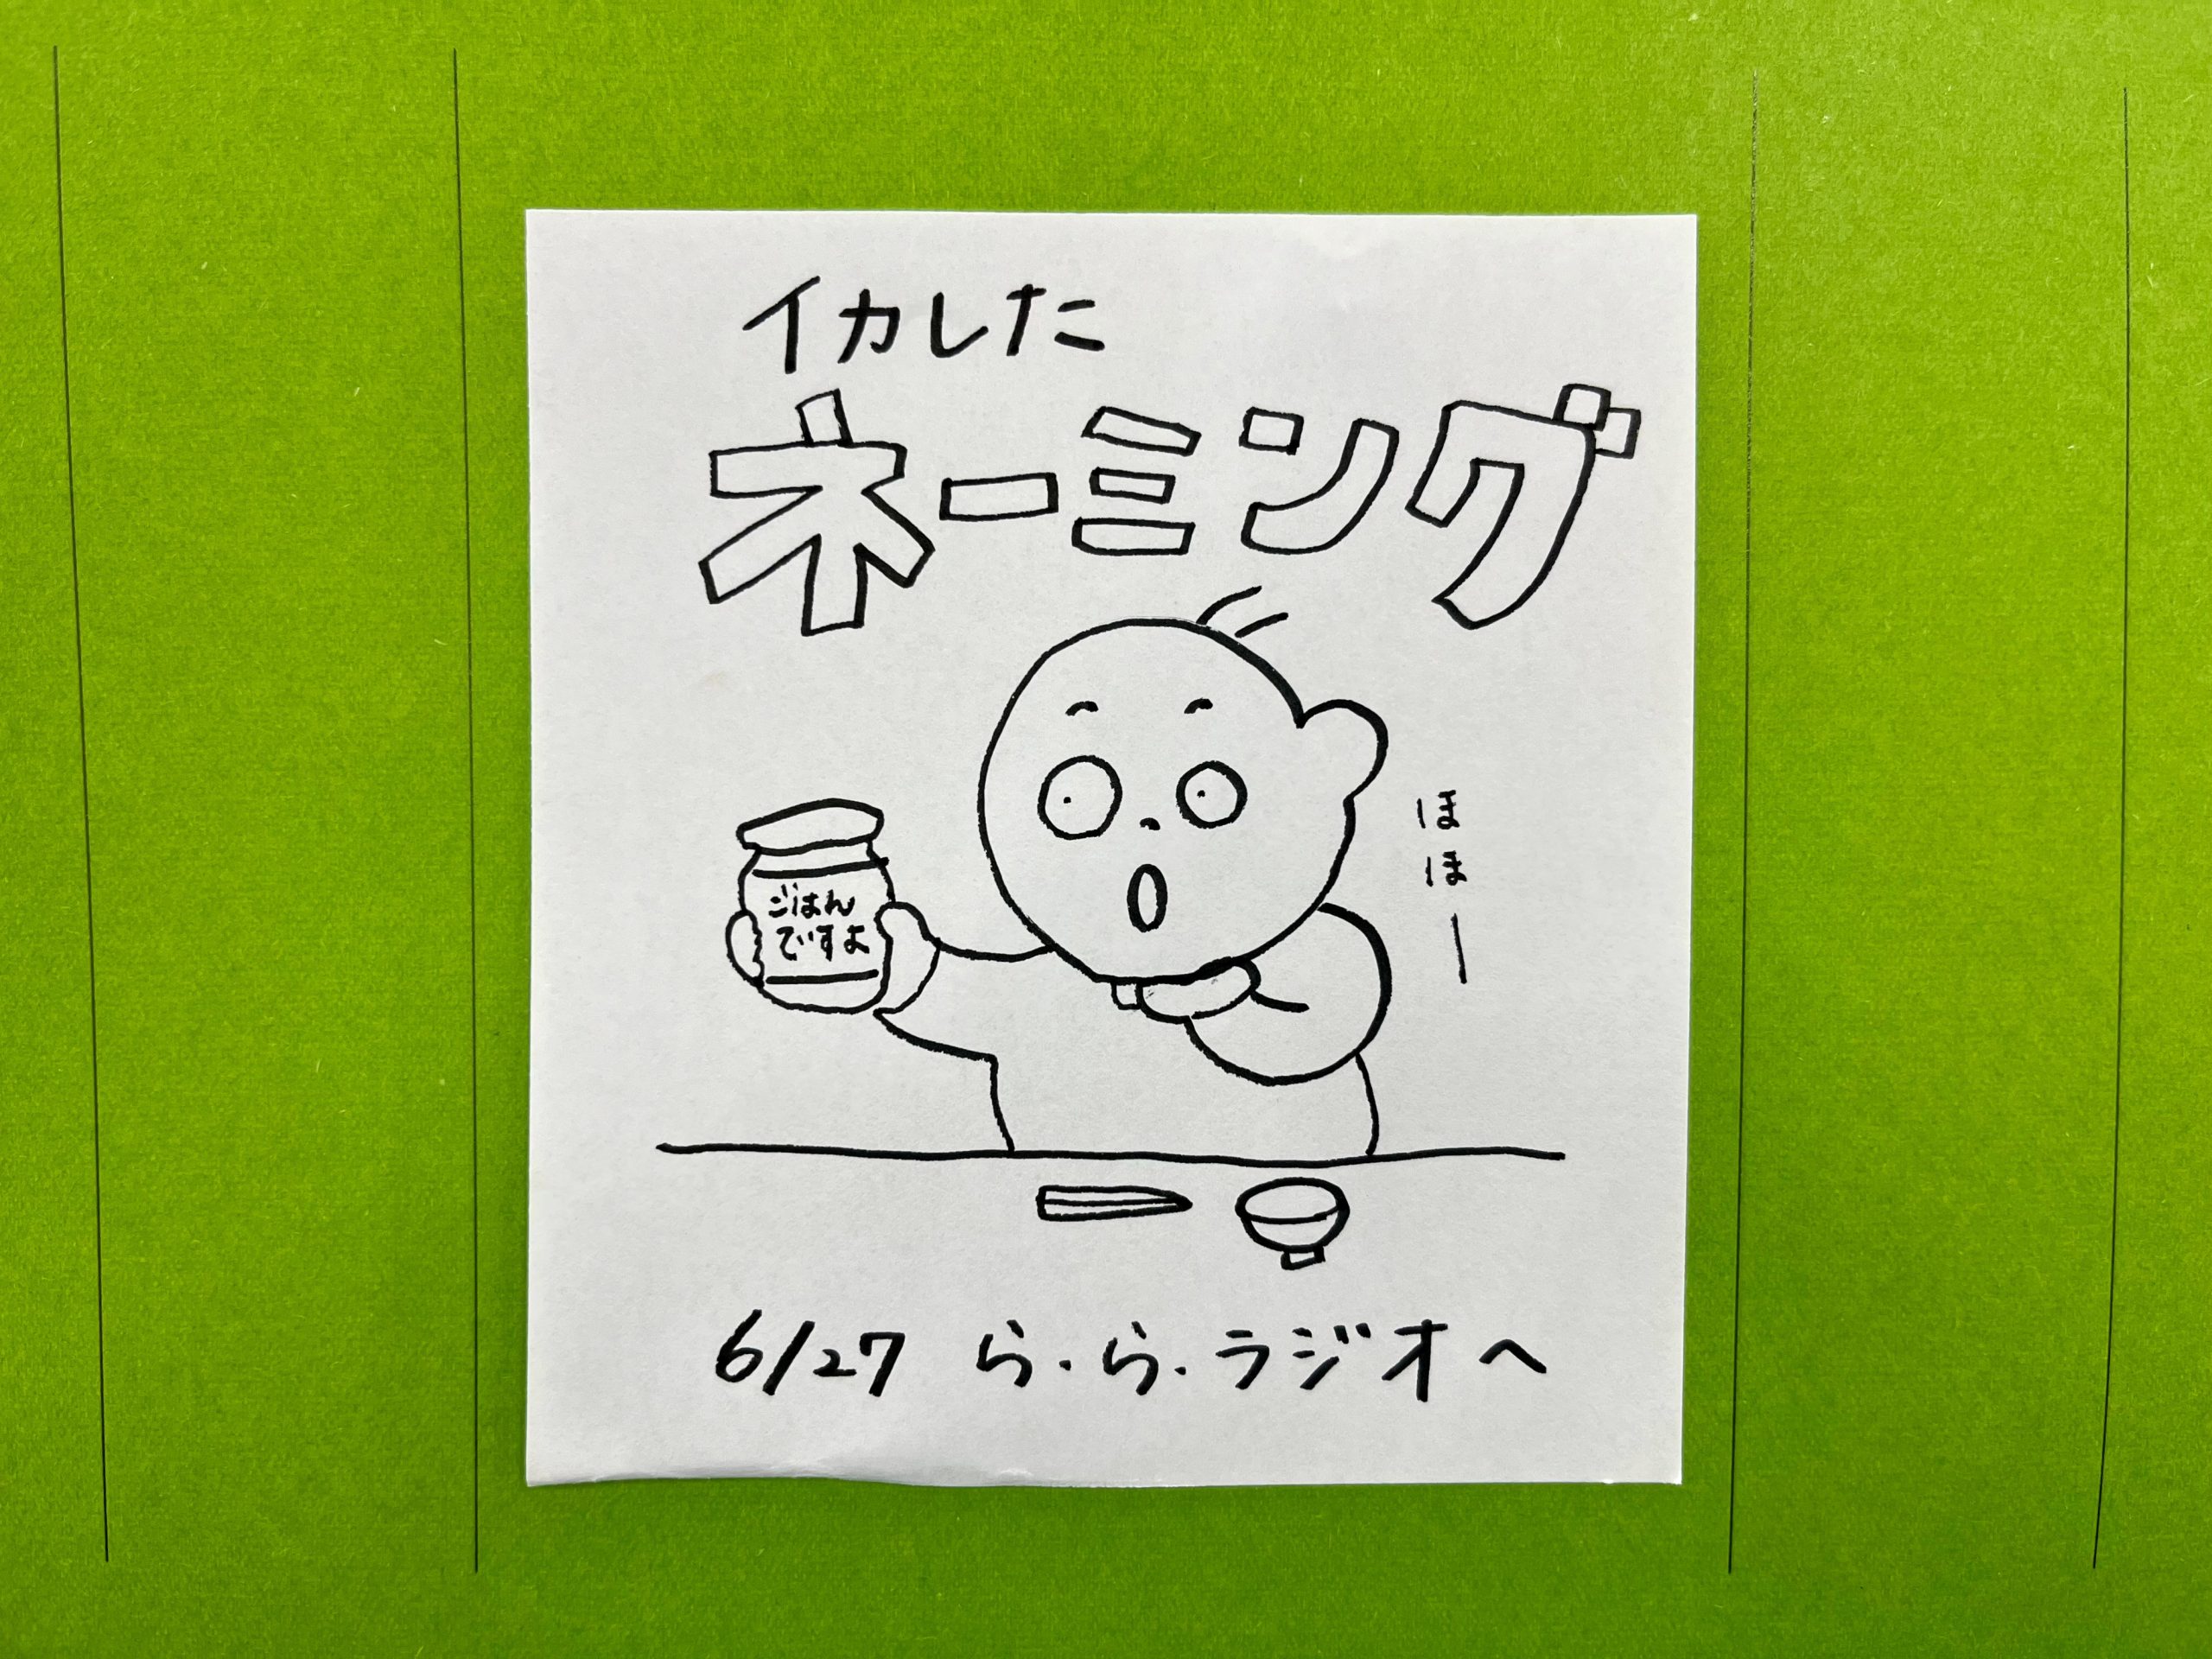 イカした
ネーミング
ごはん
ですよ
ほほー
6/27 ら・ら・ラジオへ